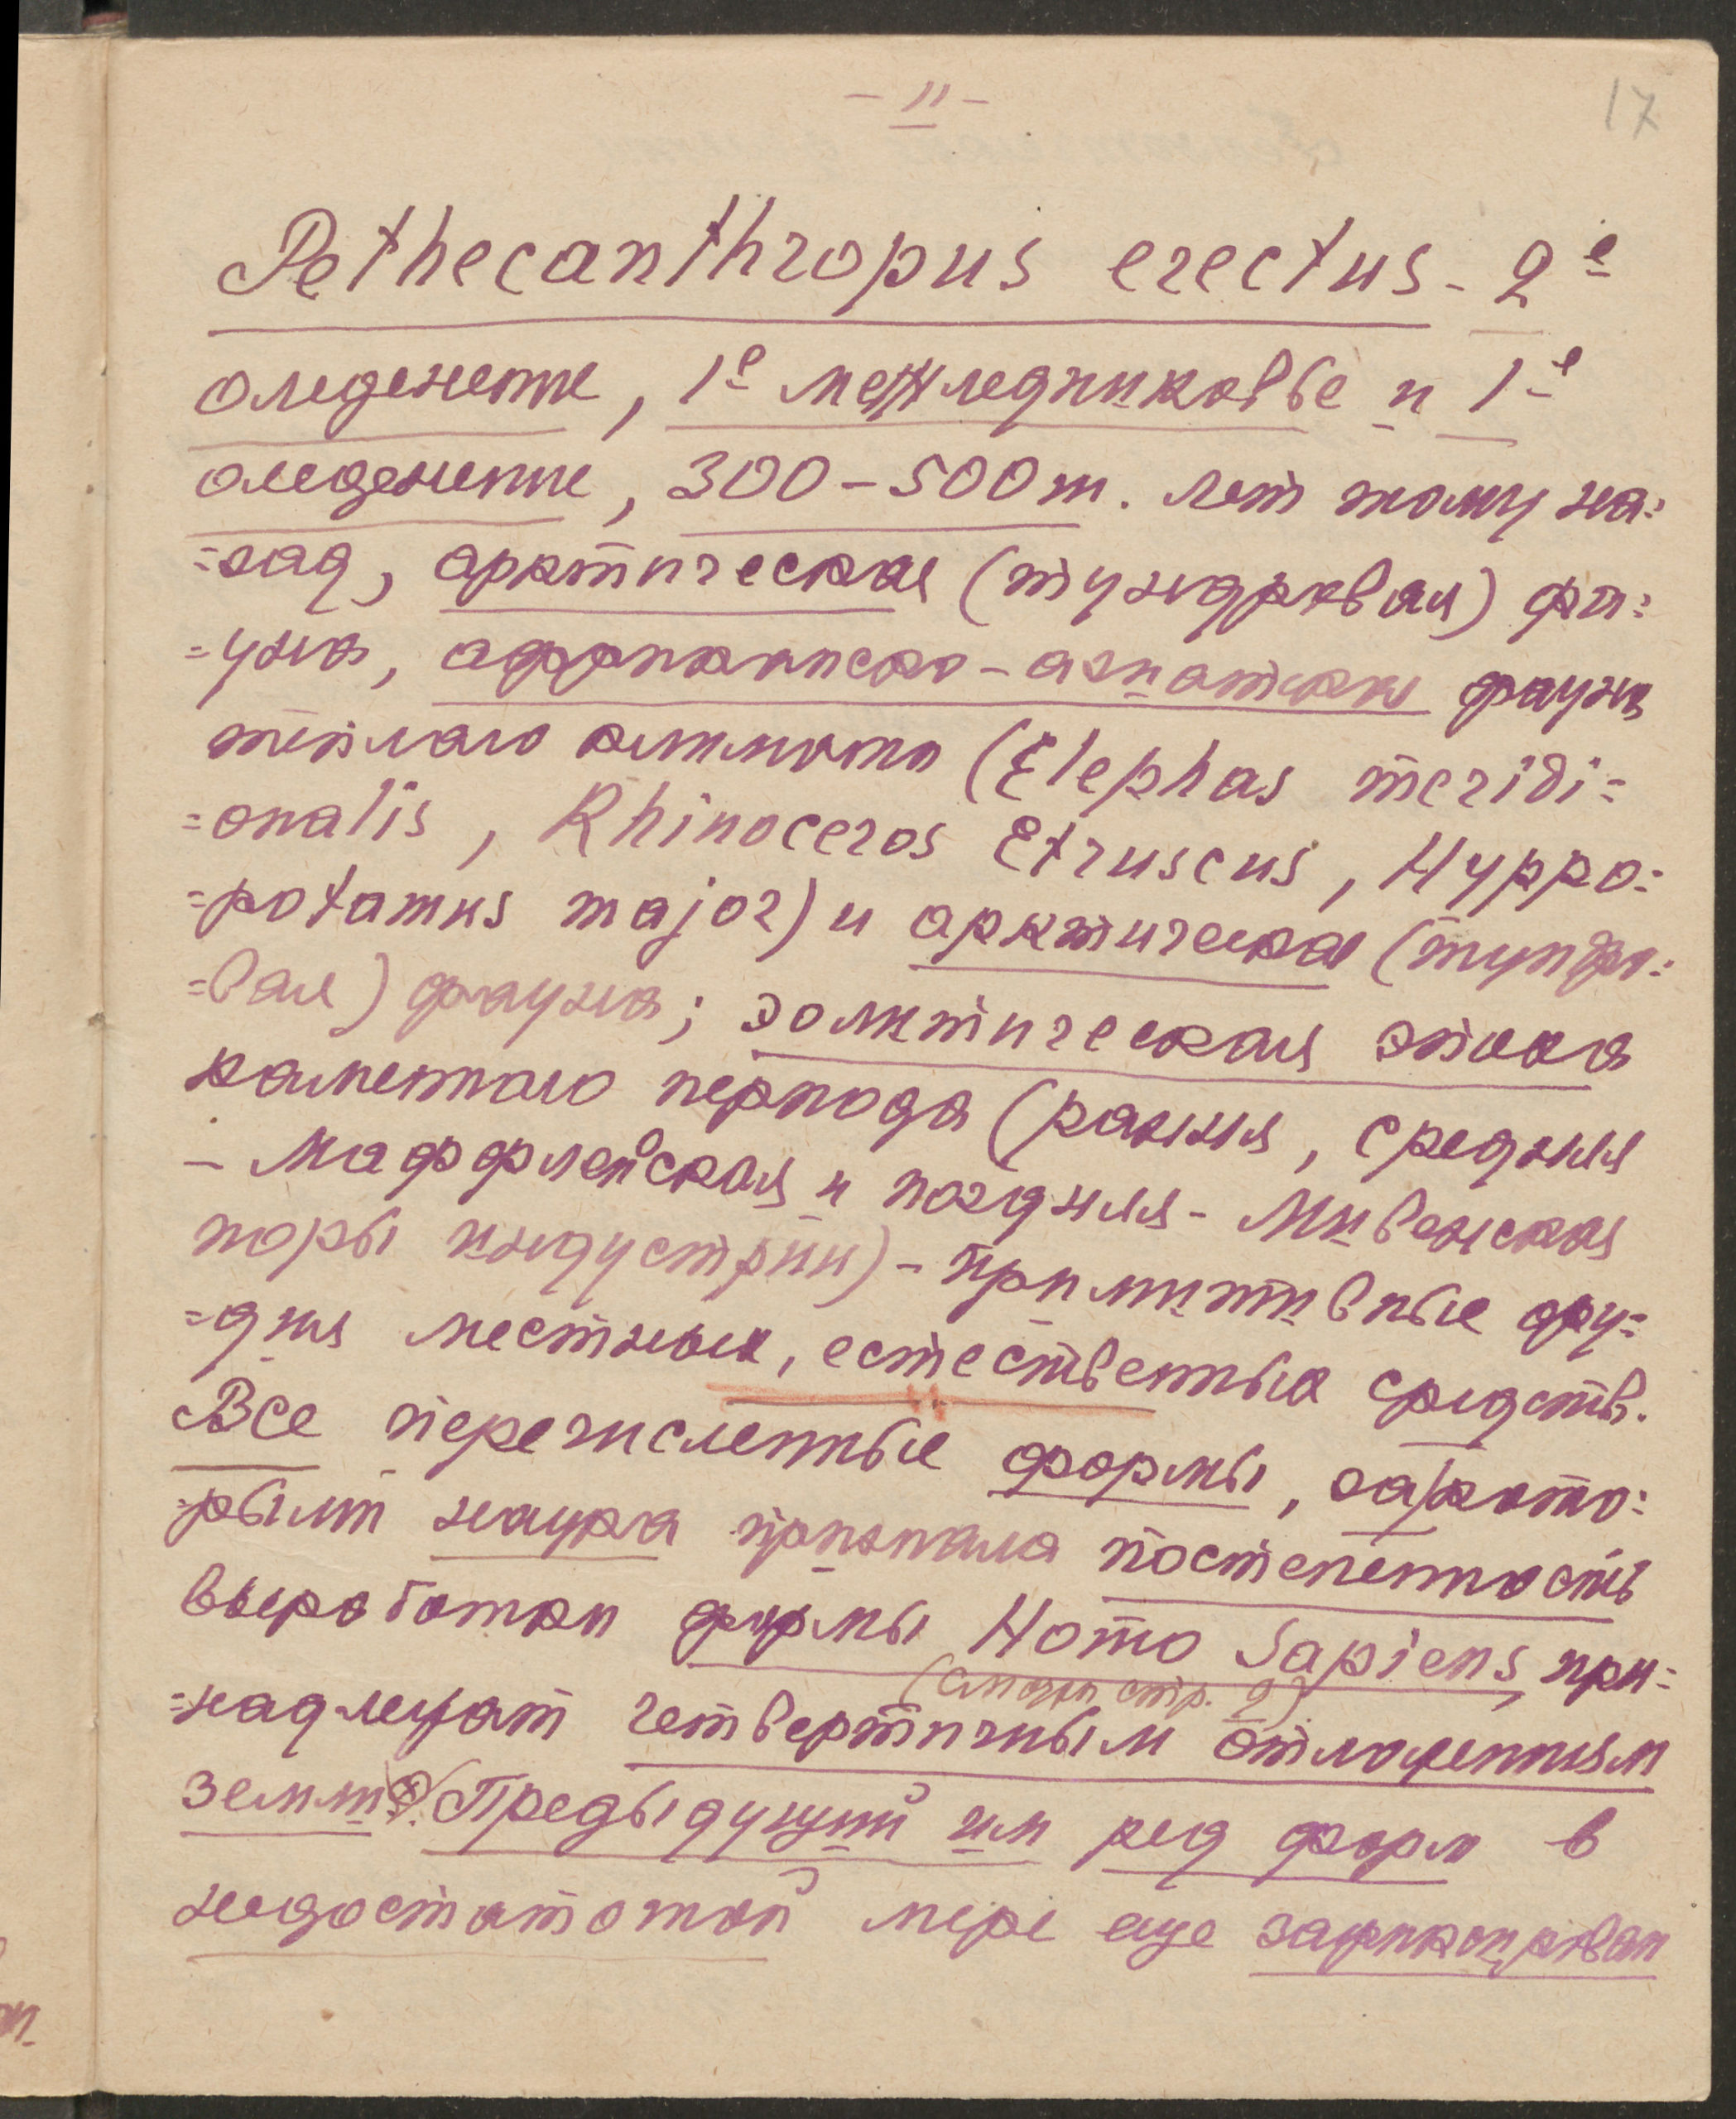 - 11 -
17
Pethecanthropus erectus - 2е
оледенение, 1е межледниковье и 1е
оледенение, 300-500 т. лет тому на=
=зад, арктическая (тундровая) фа=
=уна, африканско-азиатская фауна
теплаго климата (Elephas meridi=
=onalis, Rhinoceros Etruscus, Hyppo=
=potamus major) и арктическая (тундро=
=вая) фауна; эолитическая эпоха
каменнаго периода (ранняя, средняя
- Маффлейская и поздняя - Мивенская
поры индустрии) - примитивные ору=
=дия местных, естественных средств.
Все перечисленные формы, за кото=
рыми наука признала постепенность
выработки формы Homo Sapiens, при=
(смотри стр. 2)
=надлежат четвертичным отложениям
земли. Предыдущий им ряд форм в
недостаточной мере еще зафиксирован